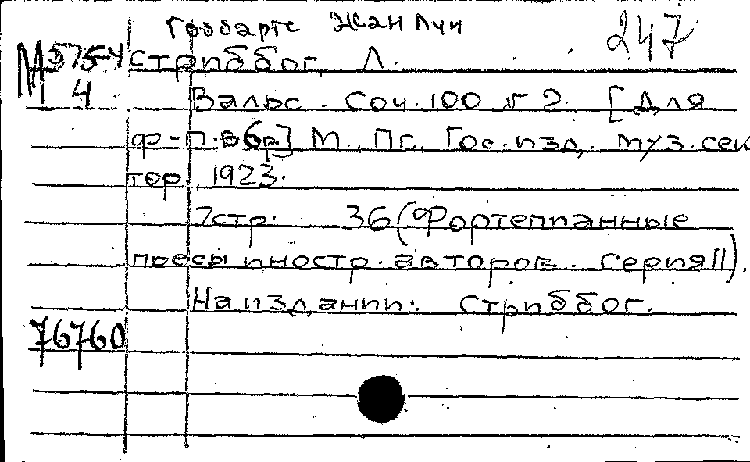 Гоббартс Жан Луи
247
М 575-4 Стрибббог, Л.
4 Вальс. Соч. 100 № 2. [Для
ф-п. в 6р.] М., Пг. Гос. изд. муз. сек
тор, 1923.
7стр. 36 (Фортепианные
пьесы иностр. авторов. Серия II).
На издании: Стрибббог.
76760